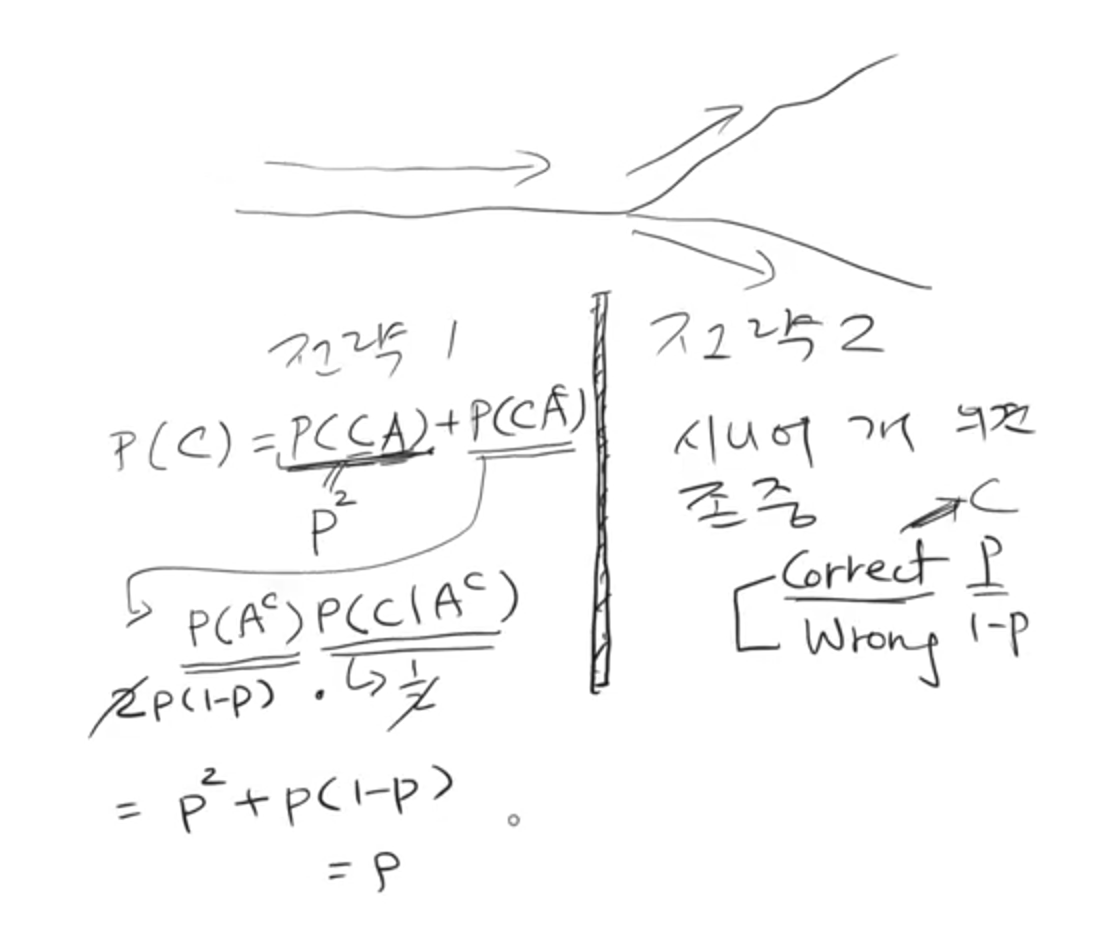 전략 1
P(C) = P(CA) + P(CAᶜ)
p²
P(Aᶜ) P(C|Aᶜ)
2p(1-p) · ½
= p² + p(1-p)
= p
전략 2
시니어 개 의견
존중
C
Correct p
Wrong 1-p